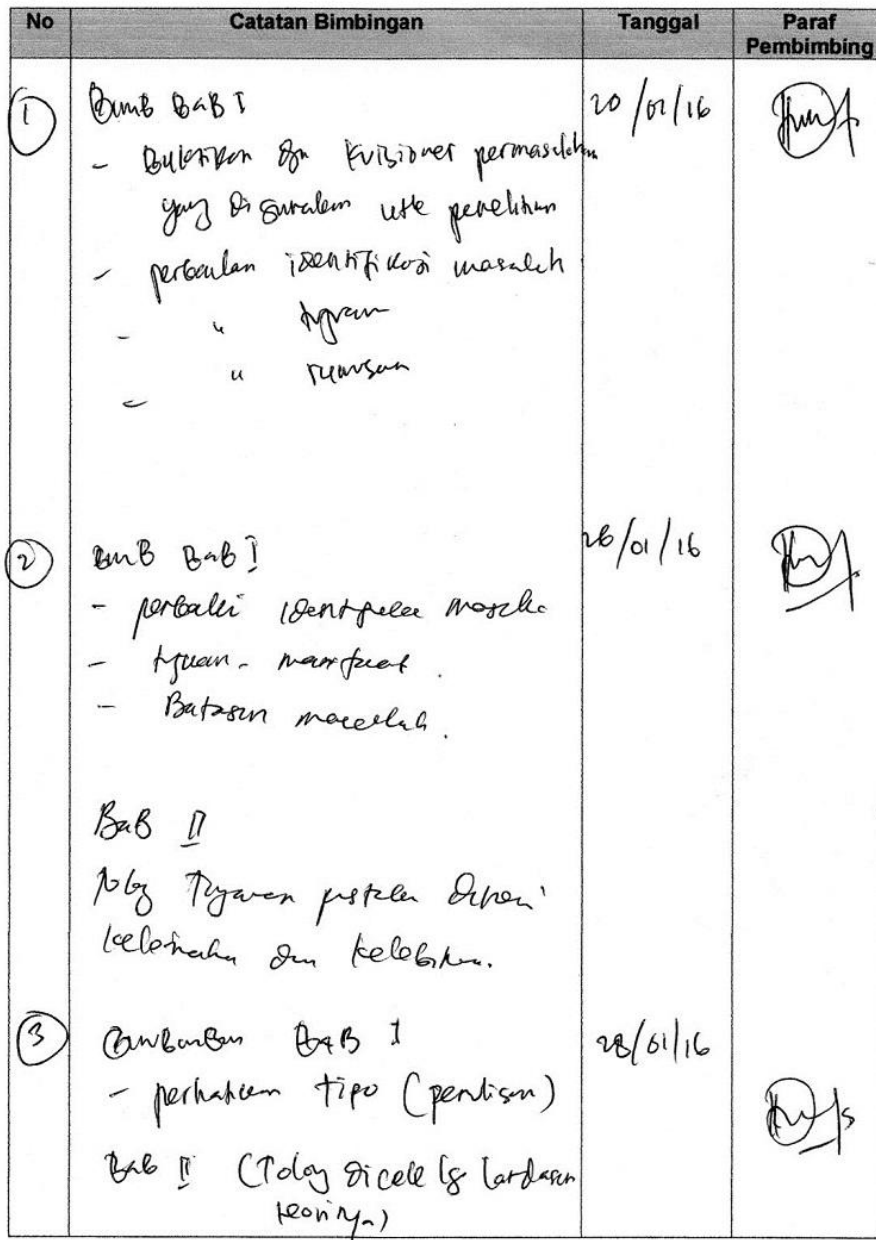 No Catatan Bimbingan Tanggal Paraf Pembimbing
1 Bimb BaB I 20/01/16
- Buktikan dgn kuisioner permasalahan
yang digunakan utk penelitian
- perbaikan identifikasi masalah
- " tujuan
- " rumusan
2 Bimb BaB I 26/01/16
- perbaiki identifikasi masalah
- tujuan - manfaat.
- Batasan masalah.
BaB II
Tolog Tinjauan pustaka diberi
kelemahan dan kelebihan.
3 Bimbingan BaB I 28/01/16
- perhatikan tipo (penulisan)
Bab II (Tolog dicek lg landasan
teorinya)